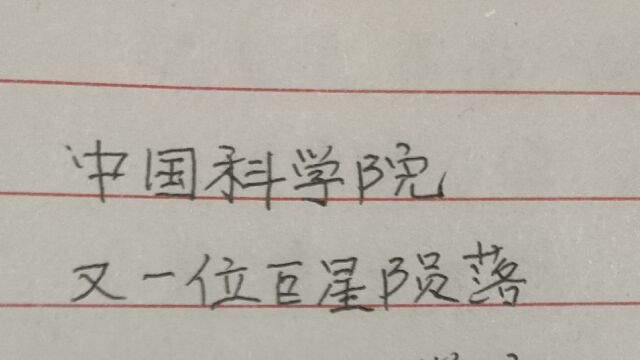 中国科学院
又一位巨星陨落